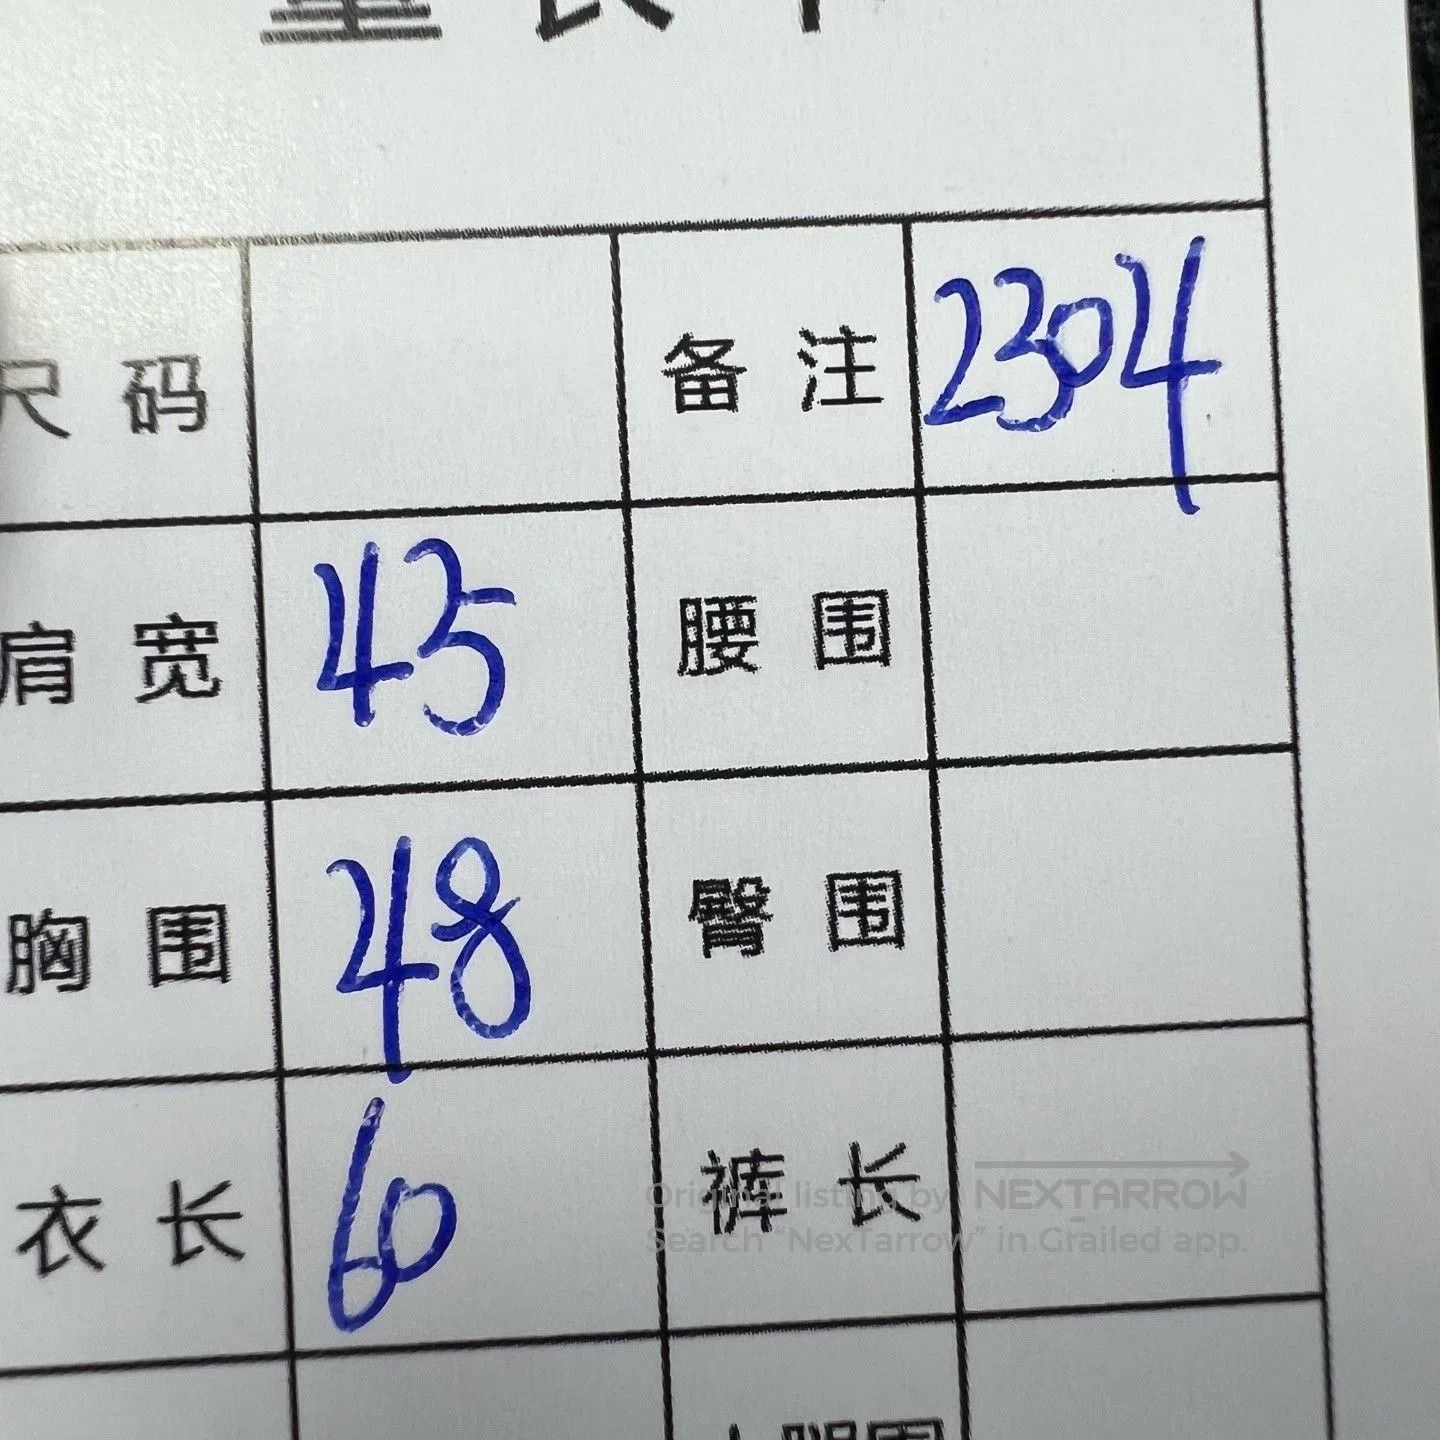 尺码 备注 2304
肩宽 45 腰围
胸围 48 臀围
衣长 60 裤长
Original listing by NEXTARROW
Search "NexTarrow" in Grailed app